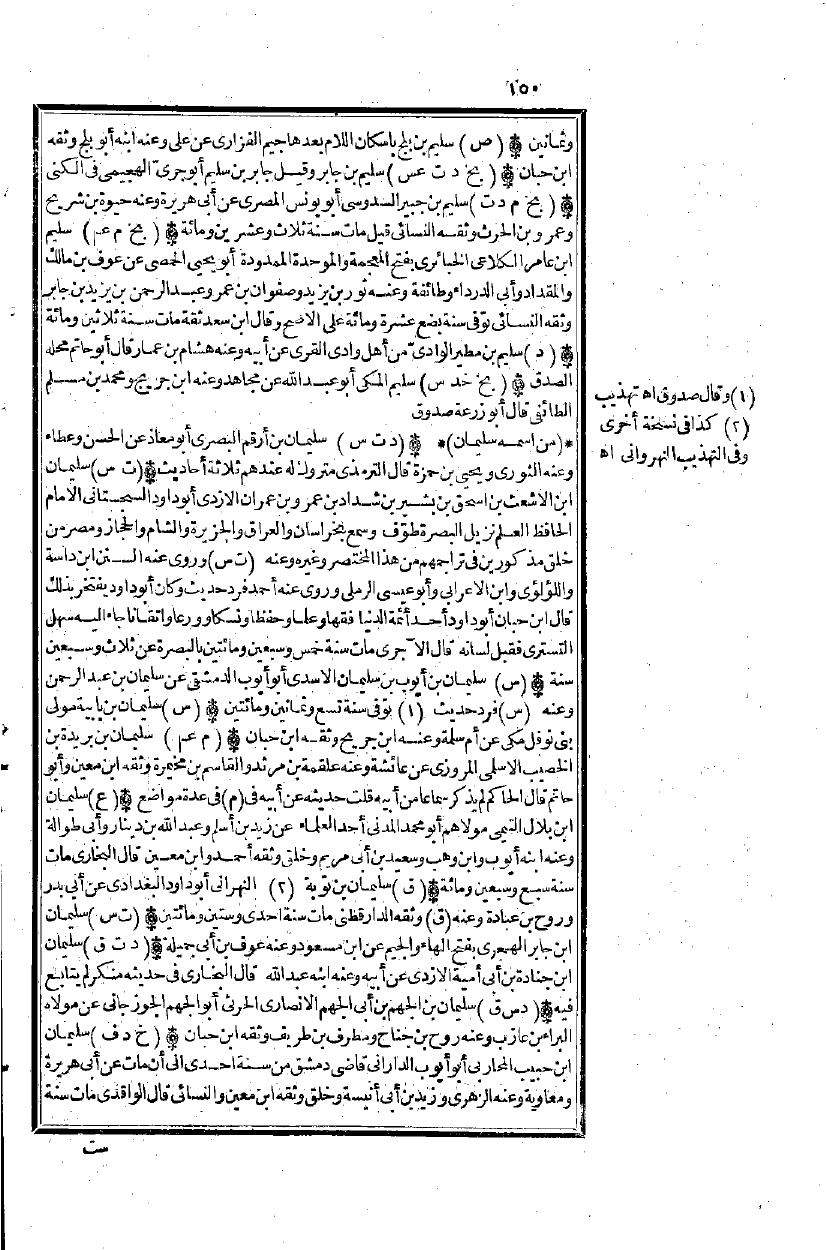 ١٥٠
وثمانين ۞ (ص) سليم بن بلج باسكان اللام بعدها جيم الفزارى عن على وعنه ابنه أبو بلج وثقه
ابن حبان ۞ (بخ د ت عس) سليم بن جابر وقيل جابر بن سليم أبو جرىّ الهجيمى فى الكنى
۞ (بخ م د ت) سليم بن جبير السدوسى أبو يونس المصرى عن أبى هريرة وعنه حيوة بن شريح
وعمرو بن الحرث وثقه النسائى قيل مات سنة ثلاث وعشرين ومائة ۞ (بخ م عم) سليم
ابن عامر الكلاعى الخبائرى بفتح المعجمة والموحدة الممدودة أبو يحيى الحمصى عن عوف بن مالك
والمقداد وأبى الدرداء وطائفة وعنه ثور بن يزيد وصفوان بن عمر وعبد الرحمن بن يزيد بن جابر
وثقه النسائى توفى سنة بضع عشرة ومائة على الاصح وقال ابن سعد ثقة مات سنة ثلاثين ومائة
۞ (د) سليم بن مطير الوادىّ من أهل وادى القرى عن أبيه وعنه هشام بن عمار قال أبو حاتم محله
الصدق ۞ (بخ خد س) سليم المكى أبو عبد الله عن مجاهد وعنه ابن جريج ومحمد بن مسلم
الطائفى قال أبو زرعة صدوق
*(من اسمه سليمان)* ۞ (د ت س) سليمان بن أرقم البصرى أبو معاذ عن الحسن وعطاء
وعنه الثورى ويحيى بن حمزة قال الترمذى متروك له عندهم ثلاثة أحاديث ۞ (ت س) سليمان
ابن الاشعث بن اسحق بن بشير بن شداد بن عمرو بن عمران الازدى أبو داود السجستانى الامام
الحافظ العلم نزيل البصرة طوّف وسمع بخراسان والعراق والجزيرة والشام والحجاز ومصر من
خلق مذكورين فى تراجمهم من هذا المختصر وغيره وعنه (ت س) وروى عنه السنن ابن داسة
واللؤلؤى وابن الاعرابى وأبو عيسى الرملى وروى عنه أحمد فرد حديث وكان أبو داود يفتخر بذلك
قال ابن حبان أبو داود أحد أئمة الدنيا فقها وعلما وحفظا ونسكا وورعا واتقانا جاء اليه سهل
التسترى فقبل لسانه قال الآجرى مات سنة خمس وسبعين ومائتين بالبصرة عن ثلاث وسبعين
سنة ۞ (س) سليمان بن أيوب بن سليمان الاسدى أبو أيوب الدمشقى عن سليمان بن عبد الرحمن
وعنه (س) فرد حديث (١) توفى سنة تسع وثمانين ومائتين ۞ (س) سليمان بن بابية مولى
بنى نوفل مكى عن أم سلمة وعنه ابن جريج وثقه ابن حبان ۞ (م عم) سليمان بن بريدة بن
الخصيب الاسلمى المروزى عن عائشة وعنه علقمة بن مرثد والقاسم بن مخيمرة وثقه ابن معين وأبو
حاتم قال الحاكم لم يذكر سماعا من أبيه قلت حديثه عن أبيه فى (م) فى عدة مواضع ۞ (ع) سليمان
ابن بلال التيمى مولاهم أبو محمد المدنى أحد العلماء عن زيد بن أسلم وعبد الله بن دينار وأبى طوالة
وعنه ابنه أيوب وابن وهب وسعيد بن أبى مريم وخلق وثقه أحمد وابن معين قال البخارى مات
سنة سبع وسبعين ومائة ۞ (ق) سليمان بن توبة (٢) النهرانى أبو داود البغدادى عن أبى بدر
وروح بن عبادة وعنه (ق) وثقه الدارقطنى مات سنة احدى وستين ومائتين ۞ (ت س) سليمان
ابن جابر الهجرى بفتح الهاء والجيم عن ابن مسعود وعنه عوف بن أبى جميلة ۞ (د ت ق) سليمان
ابن جنادة بن أبى أمية الازدى عن أبيه وعنه ابنه عبد الله قال البخارى فى حديثه منكر لم يتابع
فيه ۞ (د س ق) سليمان بن الجهم بن أبى الجهم الانصارى الحرثى أبو الجهم الجوزجانى عن مولاه
البراء بن عازب وعنه روح بن جناح ومطرف بن طريف وثقه ابن حبان ۞ (خ د ف) سليمان
ابن حبيب المحاربى أبو أيوب الدارانى قاضى دمشق من سنة احدى الى أن مات عن أبى هريرة
ومعاوية وعنه الزهرى وزيد بن أبى أنيسة وخلق وثقه ابن معين والنسائى قال الواقدى مات سنة
ست
(١) وقال صدوق اه تهذيب
(٢) كذا فى نسخة أخرى
وفى التهذيب النهروانى اه